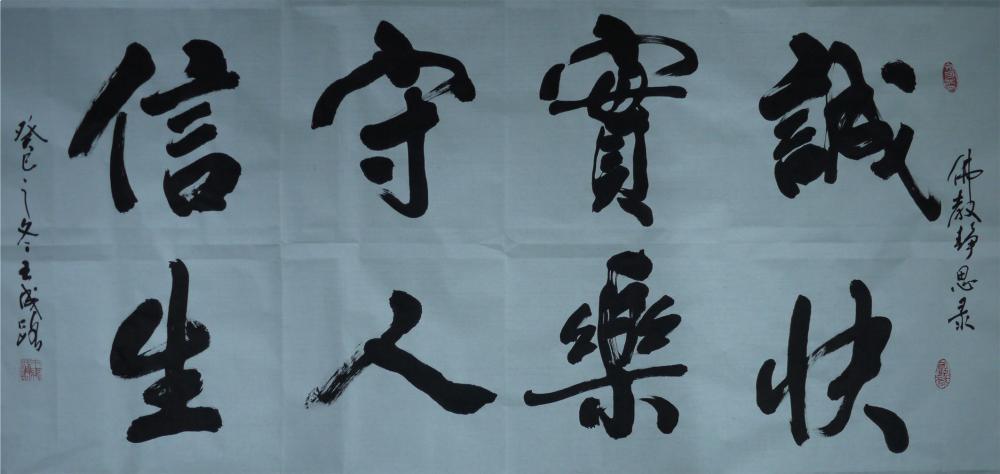 佛教静思录
誠實守信
快樂人生
癸巳之冬王成